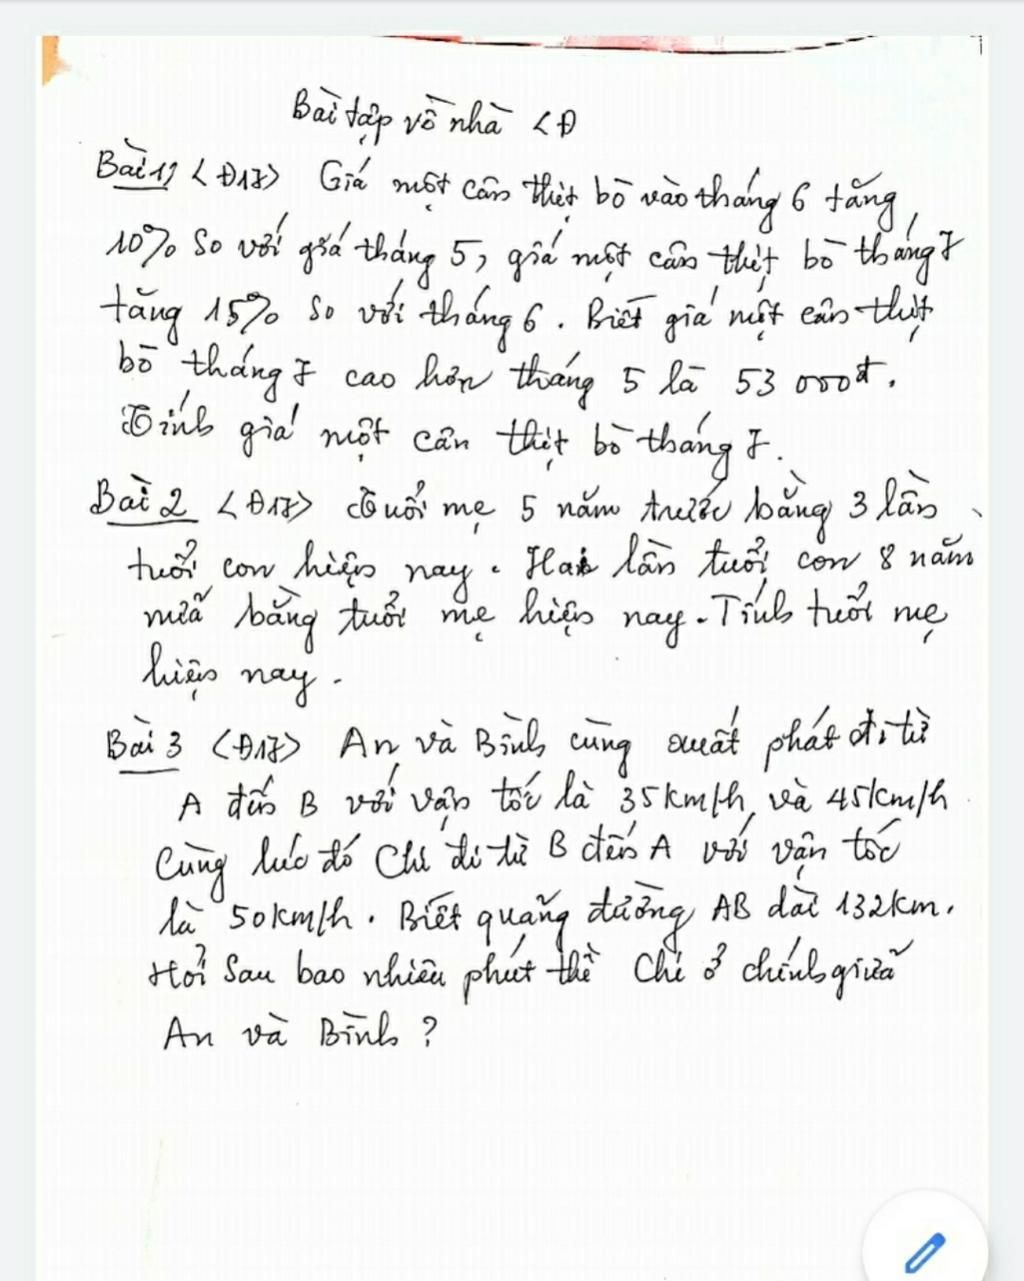 Bài tập về nhà <Đ
Bài 1, <Đ17> Giá một cân thịt bò vào tháng 6 tăng
10% so với giá tháng 5, giá một cân thịt bò tháng 7
tăng 15% so với tháng 6. Biết giá một cân thịt
bò tháng 7 cao hơn tháng 5 là 53 000đ.
Tính giá một cân thịt bò tháng 7.
Bài 2 <Đ17> Tuổi mẹ 5 năm trước bằng 3 lần
tuổi con hiện nay. Hai lần tuổi con 8 năm
nữa bằng tuổi mẹ hiện nay. Tính tuổi mẹ
hiện nay.
Bài 3 <Đ17> An và Bình cùng xuất phát đi từ
A đến B với vận tốc là 35km/h và 45km/h
Cùng lúc đó Chi đi từ B đến A với vận tốc
là 50km/h. Biết quãng đường AB dài 132km.
Hỏi sau bao nhiêu phút thì Chi ở chính giữa
An và Bình ?